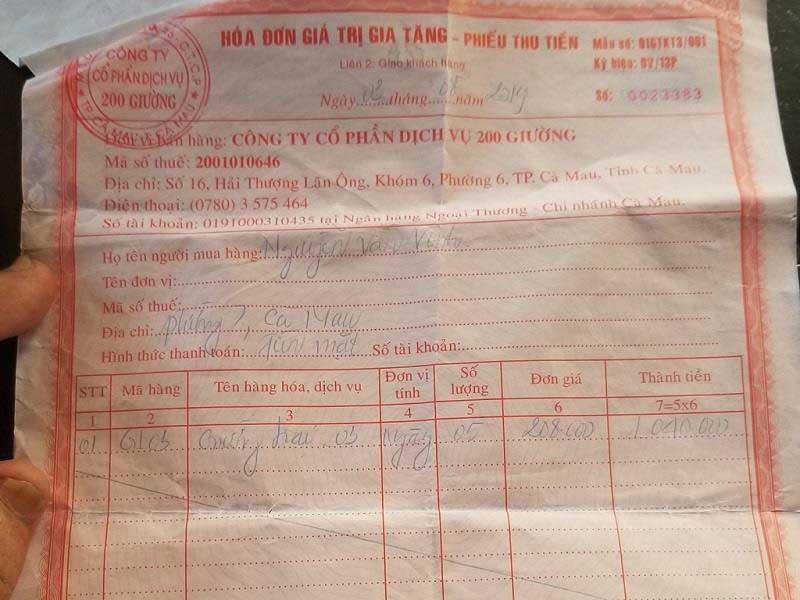 CÔNG TY
CỔ PHẦN DỊCH VỤ
200 GIƯỜNG
TP. CÀ MAU - T. CÀ MAU
HÓA ĐƠN GIÁ TRỊ GIA TĂNG - PHIẾU THU TIỀN
Mẫu số: 01GTKT3/001
Liên 2: Giao khách hàng
Ký hiệu: DV/13P
Ngày 03 tháng 08 năm 2014
Số: 0023383
Đơn vị bán hàng: CÔNG TY CỔ PHẦN DỊCH VỤ 200 GIƯỜNG
Mã số thuế: 2001010646
Địa chỉ: Số 16, Hải Thượng Lãn Ông, Khóm 6, Phường 6, TP. Cà Mau, Tỉnh Cà Mau.
Điện thoại: (0780) 3 575 464
Số tài khoản: 0191000310435 tại Ngân hàng Ngoại Thương - Chi nhánh Cà Mau.
Họ tên người mua hàng: Nguyễn Văn
Tên đơn vị:
Mã số thuế:
Địa chỉ: phường 7, Cà Mau
Hình thức thanh toán: tiền mặt Số tài khoản:
STT Mã hàng Tên hàng hóa, dịch vụ Đơn vị tính Số lượng Đơn giá Thành tiền
1 2 3 4 5 6 7=5x6
01 G103 03 Ngày 05 208.000 1 040 000